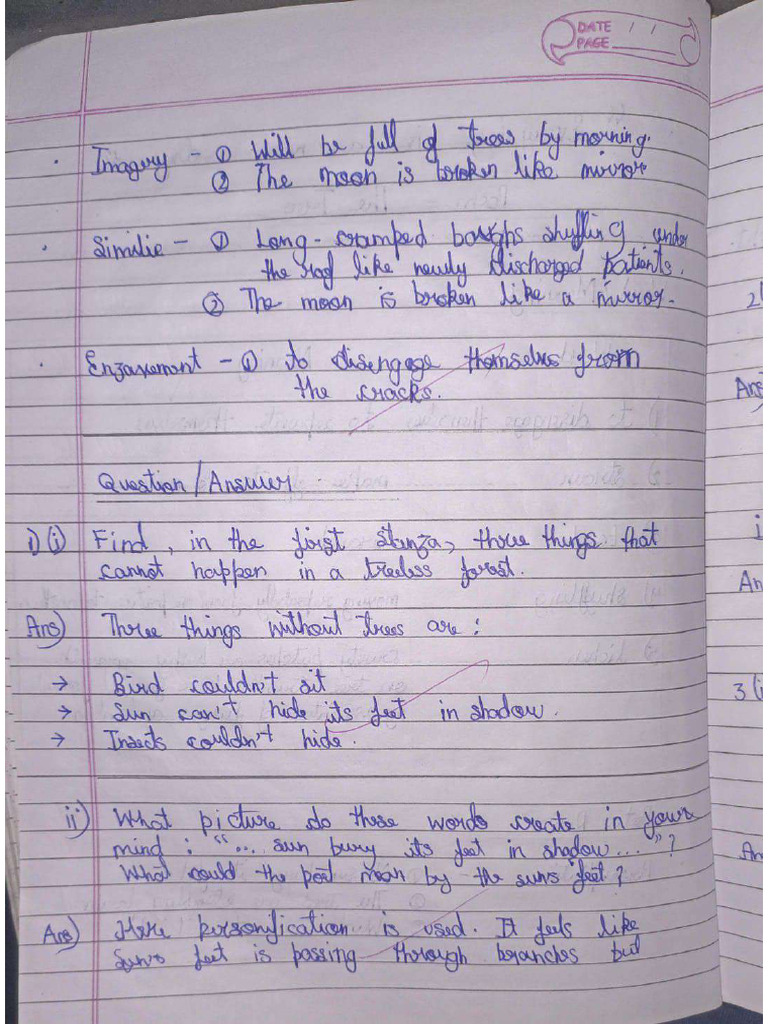 DATE / /
PAGE
. Imagery - ① Will be full of Trees by morning.
② The moon is broken like mirror
. Similie - ① Long-cramped boughs shuffling under
the roof like newly discharged patients.
② The moon is broken like a mirror.
. Enzaxement - ① to disengage themselves from
the cracks.
Question/Answer
1) (i) Find, in the first stanza, three things that
cannot happen in a treeless forest.
Ans) Three things without trees are:
→ Bird couldn't sit
→ Sun can't hide its feet in shadow.
→ Insects couldn't hide.
ii) What picture do these words create in your
mind: "... sun bury its feet in shadow..."?
What could the poet mean by the suns 'feet'?
Ans) Here personification is used. It feels like
Sun's feet is passing through branches but
2
Ans
i
An
3 (i
An